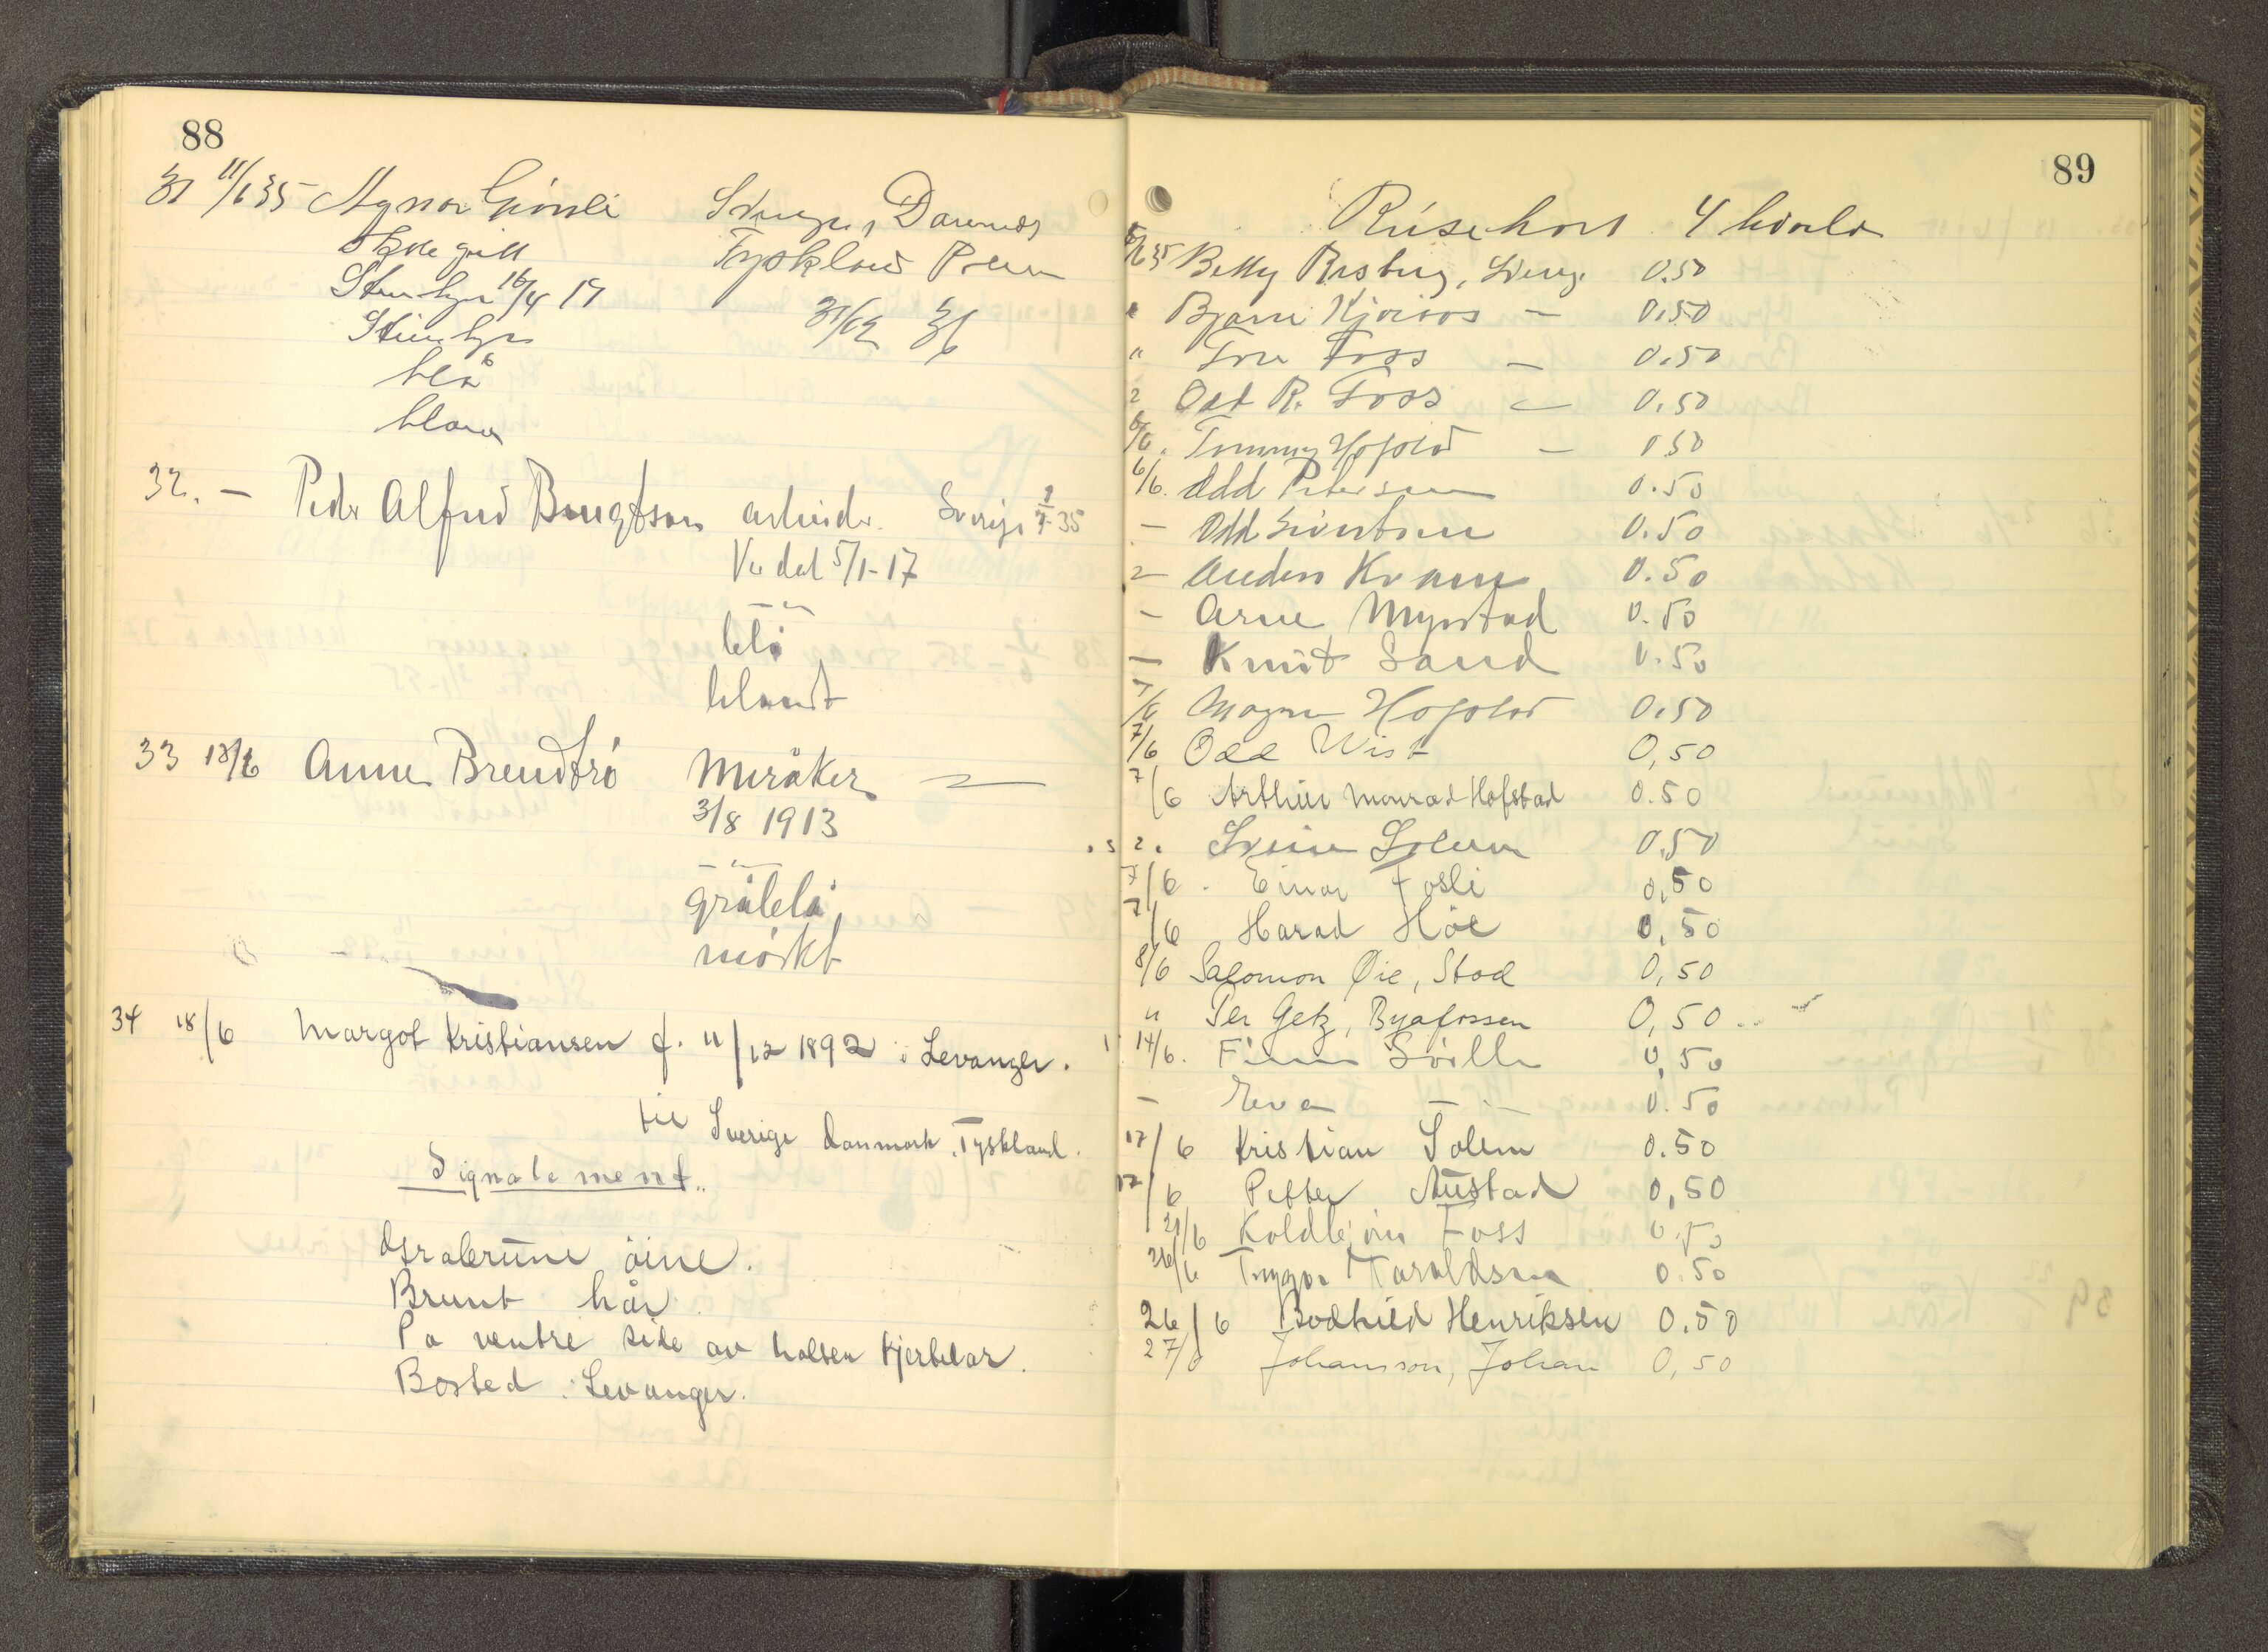 88
31 11/6 35 Agnar
Sverige, Danmark
Tyskland
16/4 17
31/12 36
blå
32. — Peder Alfred Bengtson arbeider. Sverige 35
Verdal 5/1-17
— " —
blå
blondt
33 18/6 Anne Brendtrö Meråker
3/8 1913
— " —
gråblå
mörkt
34 18/6 Margot Kristiansen f. 11/12 1892 i Levanger.
til Sverige Danmark. Tyskland.
Signalement..
öine.
Brunt hår.
På venstre side av halsen kjertelar.
Bosted: Levanger.
89
Reisekort
35 Betty 0.50
" Bjarne — 0.50
" Tore Foss — 0.50
Odd R. Foss — 0.50
Tommy — 0.50
6/6. Odd Petersen 0.50
— Odd 0.50
Anders Kvam 0.50
— Arne Mynstad 0.50
— Knut Sand 0.50
7/6 Magne 0.50
7/6 Odd Wist 0,50
7/6 Arthur Monrad Hofstad 0.50
Svein Solum 0.50
7/6. Einar Fosli 0,50
7/6 Harad Höe 0,50
8/6 Salomon Øie, Stod 0,50
" Per Getz, Byafossen 0,50
14/6. Finn 0,50
— — " — 0.50
17/6 Kristian Solem 0.50
17/6 Petter Austad 0,50
21/6 Koldbjörn Foss 0.50
26/6 Trygve Taraldsen 0.50
26/6 Bodhild Henriksen 0.50
27/6 Johansson, Johan 0,50